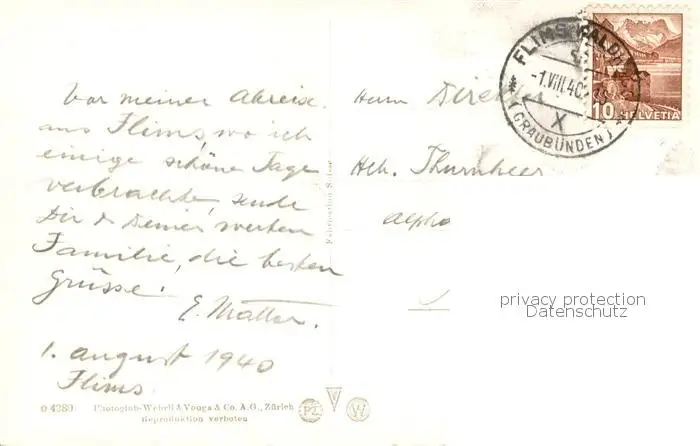 Vor meiner Abreise
aus Flims, wo ich
einige schöne Tage
verbrachte, sende
Dir & Deiner werten
Familie, die besten
Grüsse!
E. Matter.
1. august 1940
Flims
Herrn Direktor
Hch. Thurnheer
alpha
FLIMS WALDHAUS
-1.VIII.40
X
(GRAUBÜNDEN)
10 HELVETIA
privacy protection
Datenschutz
0 4280 Photoglob-Wehrli & Vouga & Co. A.G., Zürich
Reproduktion verboten
PZ W